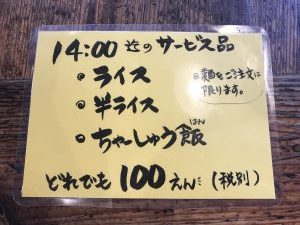 14:00 迄のサービス品
・ライス
・半ライス
・ちゃーしゅう飯
はん
◎麺をご注文に
限ります。
どれでも 100えん (税別)